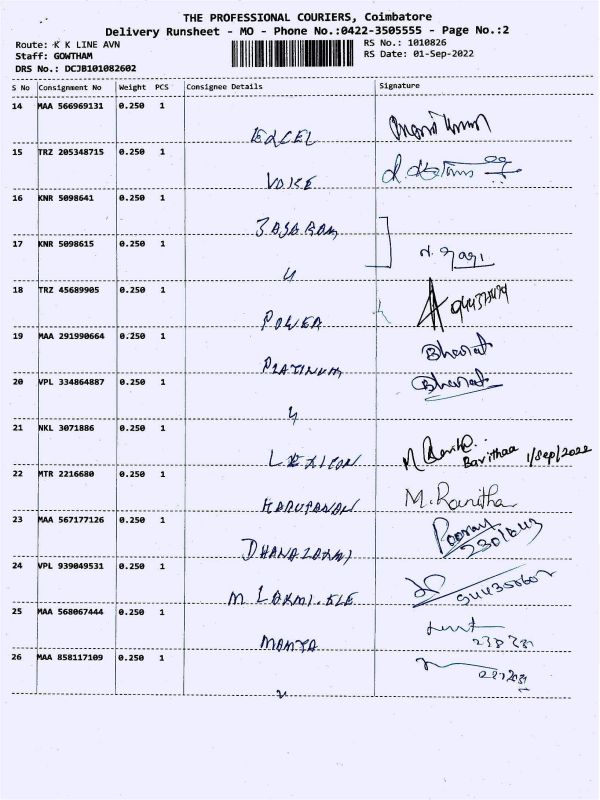 THE PROFESSIONAL COURIERS, Coimbatore
Delivery Runsheet - MO - Phone No.:0422-3505555 - Page No.:2
Route: K K LINE AVN
RS No.: 1010826
Staff: GOWTHAM
RS Date: 01-Sep-2022
DRS No.: DCJB101082602
S No Consignment No Weight PCS Consignee Details Signature
14 MAA 566969131 0.250 1
EXCEL
15 TRZ 205348715 0.250 1
VOICE
16 KNR 5098641 0.250 1
17 KNR 5098615 0.250 1
18 TRZ 45689905 0.250 1
POWER
19 MAA 291990664 0.250 1
Bharat
PLATINUM
20 VPL 334864887 0.250 1
Bharat
21 NKL 3071886 0.250 1
LEXICON
Bavithaa 1/Sep/2022
22 MTR 2216680 0.250 1
M. Ravitha
KARUPANAN
23 MAA 567177126 0.250 1
DHANALAXMI
24 VPL 939049531 0.250 1
M. LAXMI. ELE
25 MAA 568067444 0.250 1
MAMTA
26 MAA 858117109 0.250 1